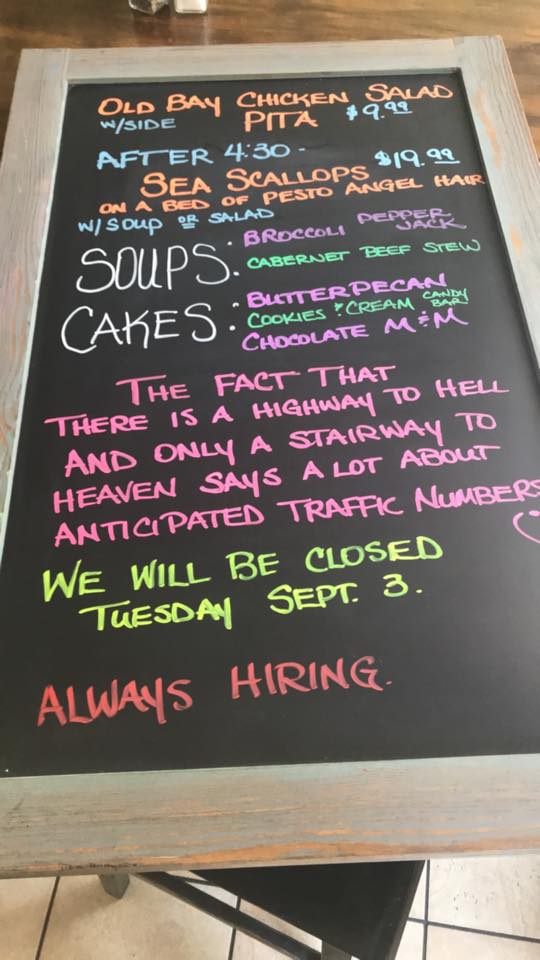 OLD BAY CHICKEN SALAD
W/SIDE PITA $9.99
AFTER 4:30 - $19.99
SEA SCALLOPS
ON A BED OF PESTO ANGEL HAIR
W/ SOUP OR SALAD
SOUPS: BROCCOLI PEPPER JACK
CABERNET BEEF STEW
CAKES: BUTTER PECAN
COOKIES & CREAM CANDY BAR
CHOCOLATE M&M
THE FACT THAT
THERE IS A HIGHWAY TO HELL
AND ONLY A STAIRWAY TO
HEAVEN SAYS A LOT ABOUT
ANTICIPATED TRAFFIC NUMBERS
WE WILL BE CLOSED
TUESDAY SEPT. 3.
ALWAYS HIRING.